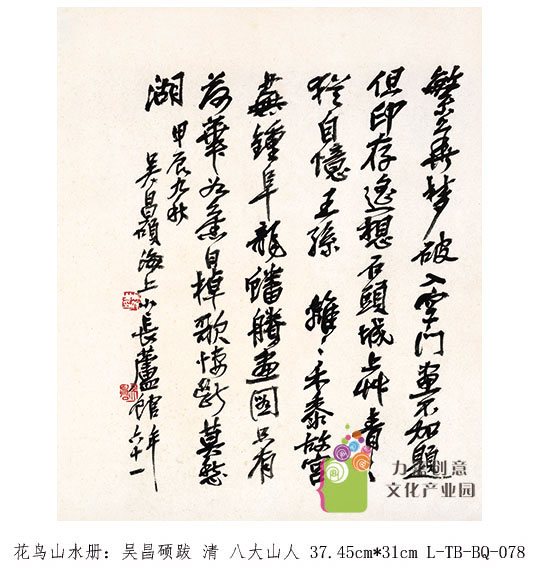 繁華夢破入空門畫不加題
但印存遙想石頭城上艸青
猶自憶王孫 離〻禾黍故宮
蕪鍾阜龍蟠賸畫圖只有
荷華如舊日棹歌悽斷莫愁
湖 甲辰九秋
吳昌碩海上小長蘆館年六十一
创意
文化产业园
花鸟山水册：吴昌硕跋 清 八大山人 37.45cm*31cm L-TB-BQ-078